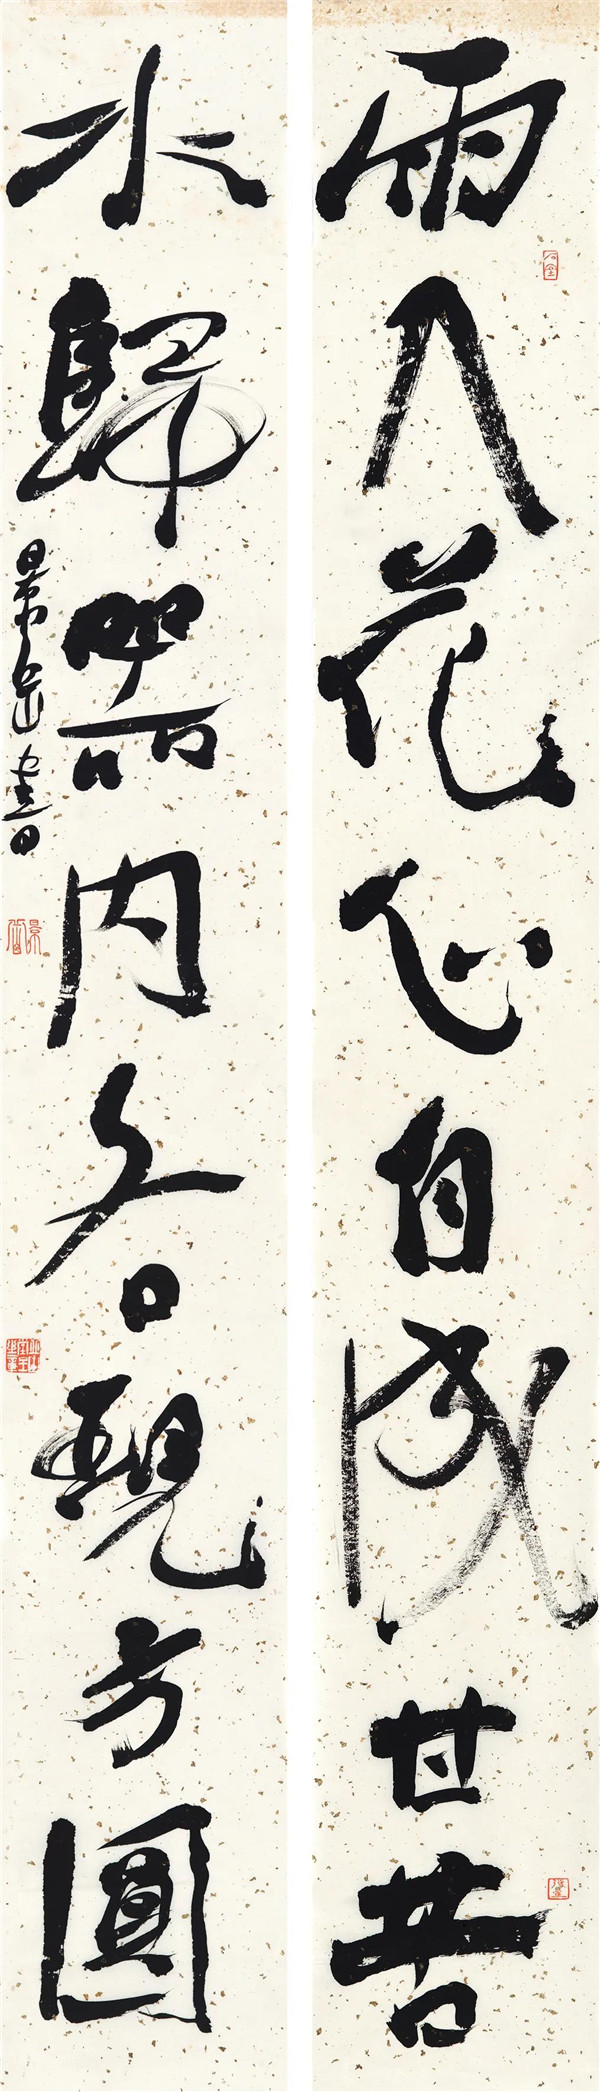 雨入花心自成甘苦
水歸器内各現方圓
景岳書